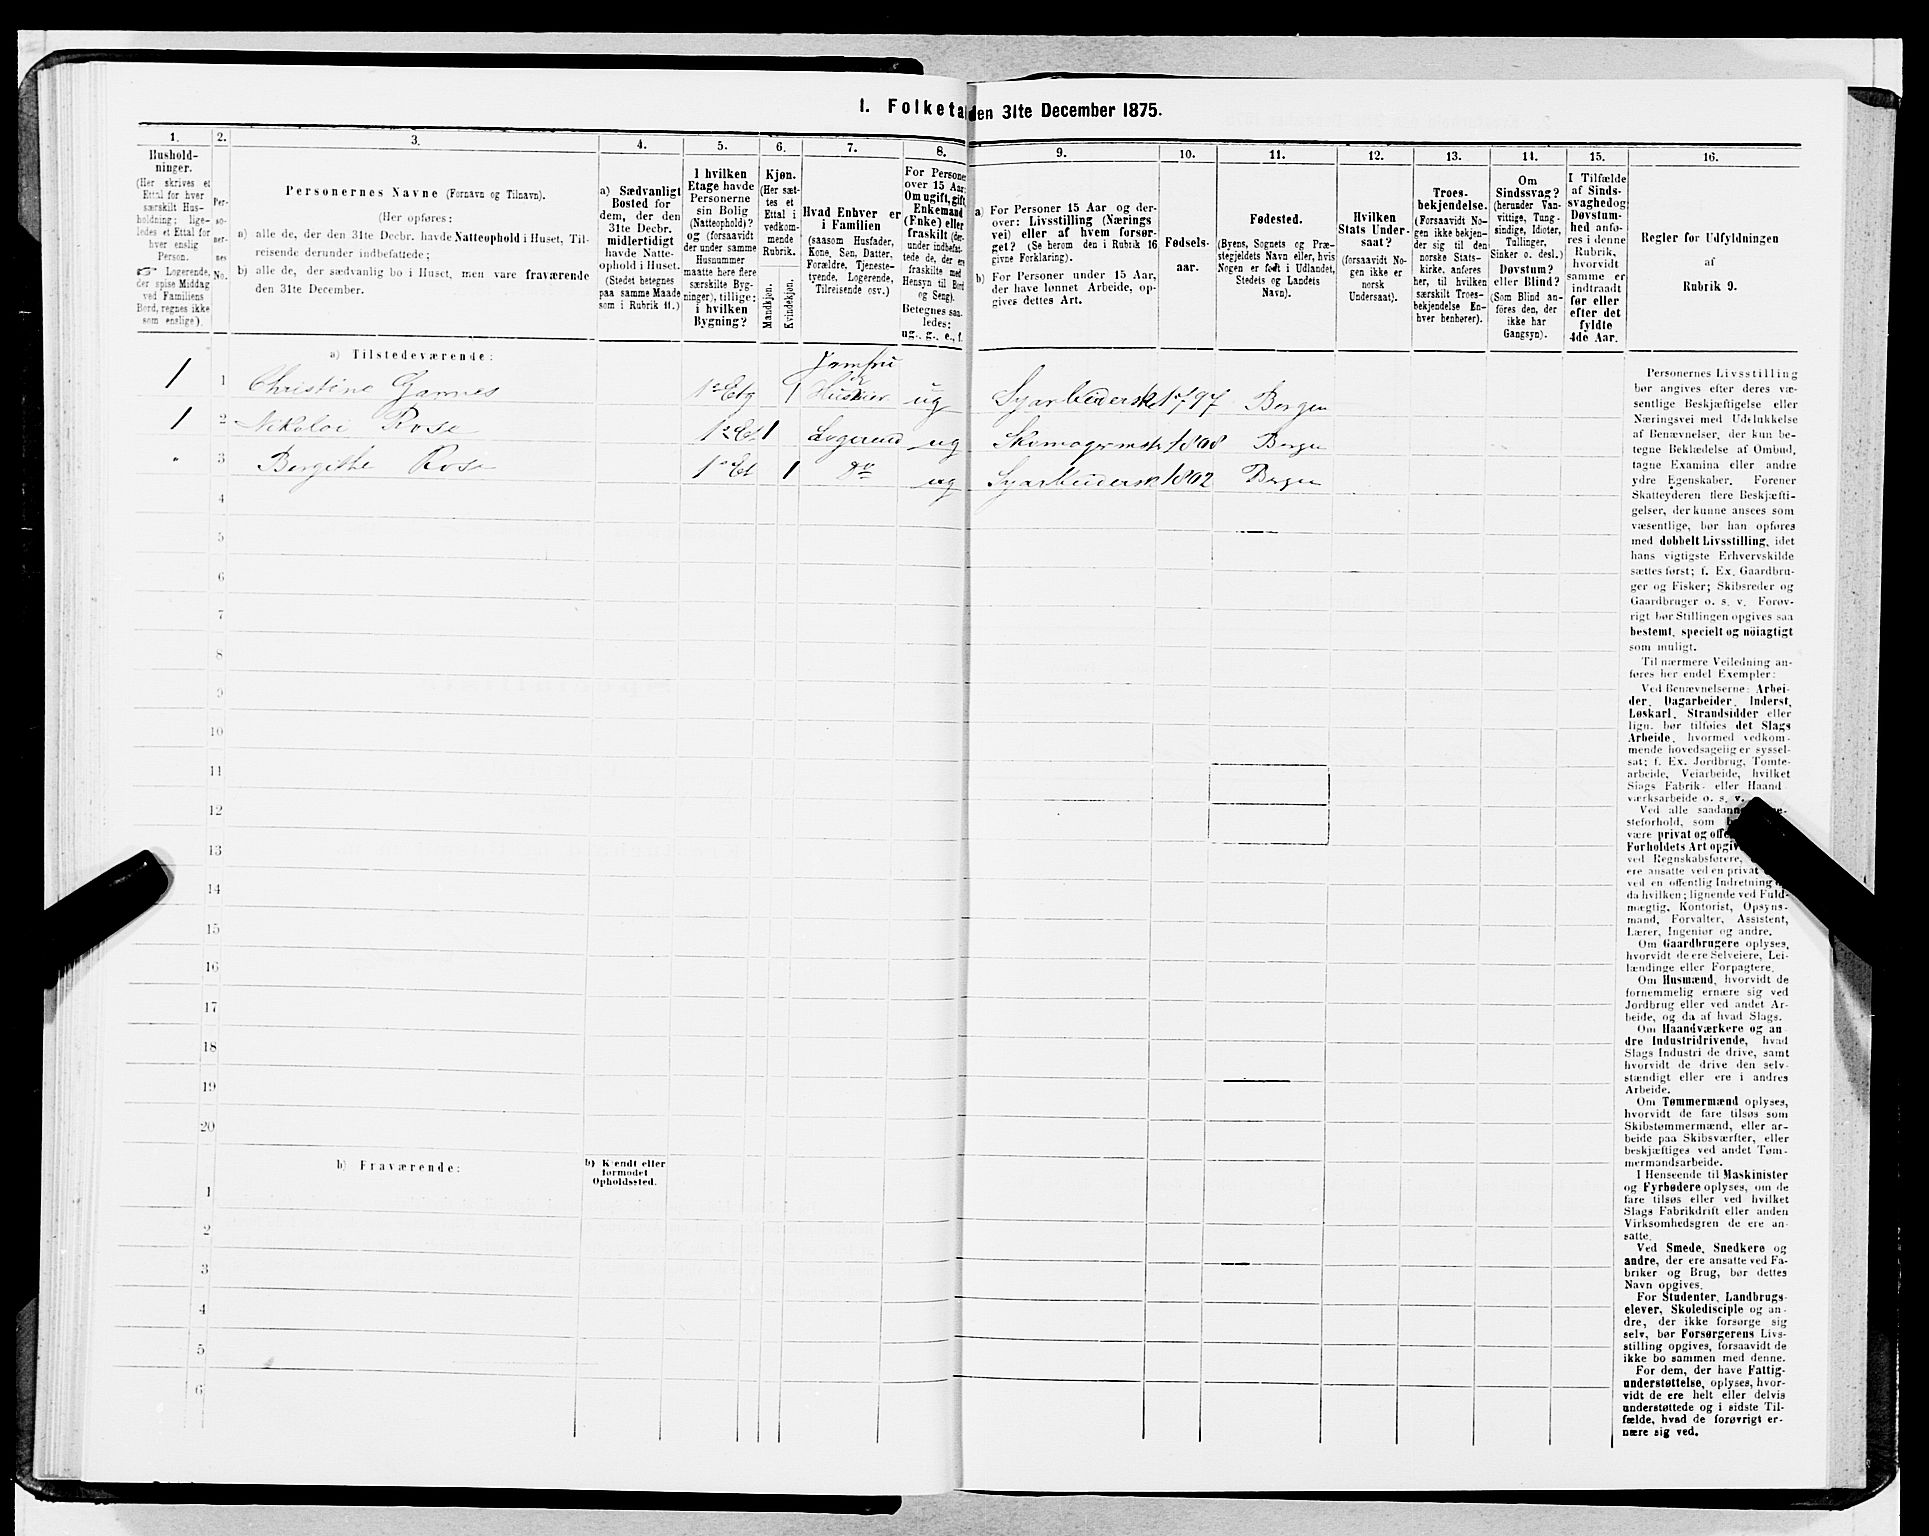 1. Folketal den 31te December 1875.
1. 2. 3. 4. 5. 6. 7. 8. 9. 10. 11. 12. 13. 14. 15. 16.
Hushold-
ninger.
(Her skrives et
Ettal for hver
særskilt Hus-
holdning; lige-
ledes et Ettal for
hver enslig
Person.
☞ Logerende,
der spise Middag
ved Familiens
Bord, regnes ikke
som enslige).
Per-
so-
ner-
nes
No.
Personernes Navne (Fornavn og Tilnavn).
(Her opføres:
a) alle de, der den 31te Decbr. havde Natteophold i Huset, Til-
reisende derunder indbefattede;
b) alle de, der sædvanlig bo i Huset, men vare fraværende
den 31te December.
a) Sædvanligt
Bosted for
dem, der den
31te Decbr.
midlertidigt
havde Natte-
ophold i Huset.
(Stedet betegnes
paa samme Maade
som i Rubrik 11.)
I hvilken
Etage havde
Personerne
sin Bolig
(Natteophold)?
og (forsaavidt
der under samme
Husnummer
maatte høre flere
særskilte Byg-
ninger), tillige:
i hvilken
Bygning?
Kjøn.
(Her sæt-
tes et
Ettal i
vedkom-
mende
Rubrik.
Mandkjøn.
Kvindekjøn.
Hvad Enhver er
i Familien
(saasom Husfader,
Kone, Søn, Datter,
Forældre, Tjeneste-
tyende, Logerende,
Tilreisende osv.)
For Personer
over 15 Aar:
Om ugift, gift,
Enkemand
(Enke) eller
fraskilt (der-
under indbefat-
tede de, der ere
fraskilte med
Hensyn til Bord
og Seng).
Betegnes saa-
ledes:
ug., g., e., f.
a) For Personer 15 Aar og der-
over: Livsstilling (Nærings
vei) eller af hvem forsør-
get? (Se herom den i Rubrik 16
givne Forklaring).
b) For Personer under 15 Aar,
der have lønnet Arbeide, op-
gives dettes Art.
Fødsels-
aar.
Fødested.
(Byens, Sognets og Præ-
stegjeldets Navn eller, hvis
Nogen er født i Udlandet,
Stedets og Landets
Navn).
Hvilken
Stats Under-
saat?
(forsaavidt No-
gen ikke er
norsk
Undersaat).
Troes-
bekjendelse.
(Forsaavidt No-
gen ikke bekjen-
der sig til den
norske Stats-
kirke, anføres
her, til hvilken
særskilt Troes-
bekjendelse En-
hver henhører).
Om
Sindssvag?
(herunder Van-
vittige, Tung-
sindige, Idioter,
Tullinger,
Sinker o. desl.)
Døvstum?
eller Blind?
(Som Blind an-
føres den, der
ikke har
Gangsyn).
I Tilfælde
af Sinds-
svaghed og
Døvstum-
hed anfø-
res i denne
Rubrik,
hvorvidt
samme er
indtraadt
før eller
efter det
fyldte
4de Aar.
Regler for Udfyldningen
af
Rubrik 9.
a) Tilstedeværende:
Jomfru
1 1 Christine 1ᵉ Etg 1 ug Syarbeiderske 1797 Bergen
1 2 Nikolai Rose 1ᵉ Et 1 Logerend ug Skomagermstr 1808 Bergen
" 3 Bergitthe Rose 1ᵉ Et 1 do ug Syarbeidersk 1802 Bergen
4
5
6
7
8
9
10
11
12
13
14
15
16
17
18
19
20
b) Fraværende:
b) Kjendt eller
formodet
Opholdssted.
1
2
3
4
5
6
Personernes Livsstilling
bør angives efter deres væ-
sentlige Beskjæftigelse eller
Næringsvei med Udelukkelse
af Benævnelser, der kun be-
tegne Beklædelse af Ombud,
tagne Examina eller andre
ydre Egenskaber. Forener
Skatteyderen flere Beskjæfti-
gelser, der kunne ansees som
væsentlige, bør han opføres
med dobbelt Livsstilling, idet
hans vigtigste Erhvervskilde
sættes først; f. Ex. Gaardbru-
ger og Fisker; Skibsreder og
Gaardbruger o. s. v. Forøv-
rigt bør Stillingen opgives saa
bestemt, specielt og nöiagtigt
som muligt.
Til nærmere Veiledning an-
føres her endel Exempler:
Ved Benævnelserne: Arbei-
der, Dagarbeider, Inderst,
Løskarl, Strandsidder eller
lign. bør tilføies det Slags
Arbeide, hvormed vedkom-
mende hovedsagelig er syssel-
sat; f. Ex. Jordbrug, Tomte-
arbeide, Veiarbeide, hvilket
Slags Fabrik- eller Haand-
værksarbeide o. s. v.
Ved alle saadanne
steforhold, som
være privat og
Forholdets Art
ved Regnskabsførere,
ere ansatte ved en privat
ved en offentlig Indretning
da hvilken; lignende ved Fuld-
mægtig, Kontorist, Opsyns-
mand, Forvalter, Assistent,
Lærer, Ingeniør og andre.
Om Gaardbrugere oplyses,
hvorvidt de ere Selveiere, Lei-
lændinge eller Forpagtere.
Om Husmænd, hvorvidt de
fornemmelig ernære sig ved
Jordbrug eller ved andet Ar-
beide, og da af hvad Slags.
Om Haandværkere og an-
dre Industridrivende, hvad
Slags Industri de drive, samt
hvorvidt de drive den selv-
stændigt eller ere i andres
Arbeide.
Om Tømmermænd oplyses,
hvorvidt de fare tilsøs som
Skibstømmermænd, eller ar-
beide paa Skibsværfter, eller
beskjæftiges ved andet Tøm-
mermandsarbeide.
I Henseende til Maskinister
og Fyrbødere oplyses, om de
fare tilsøs eller ved hvilket
Slags Fabrikdrift eller anden
Virksomhedsgren de ere an-
satte.
Ved Smede, Snedkere og
andre, der ere ansatte ved Fa-
briker og Brug, bør dettes
Navn opgives.
For Studenter, Landbrugs-
elever, Skoledisciple og an-
dre, der ikke forsørge sig
selv, bør Forsørgerens Livs-
stilling opgives, forsaavidt de
ikke bo sammen med denne.
For dem, der have Fattig-
understøttelse, oplyses, hvor-
vidt de ere helt eller delvis
understøttede og i sidste Til-
fælde, hvad de forøvrigt er-
nære sig ved.